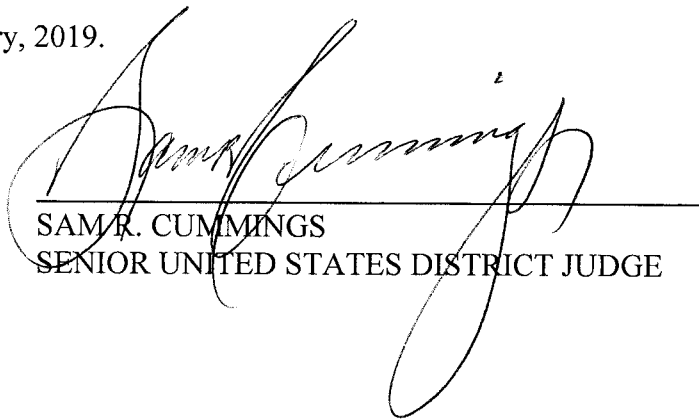 ry, 2019.
Sam R Cummings
SAM R. CUMMINGS
SENIOR UNITED STATES DISTRICT JUDGE